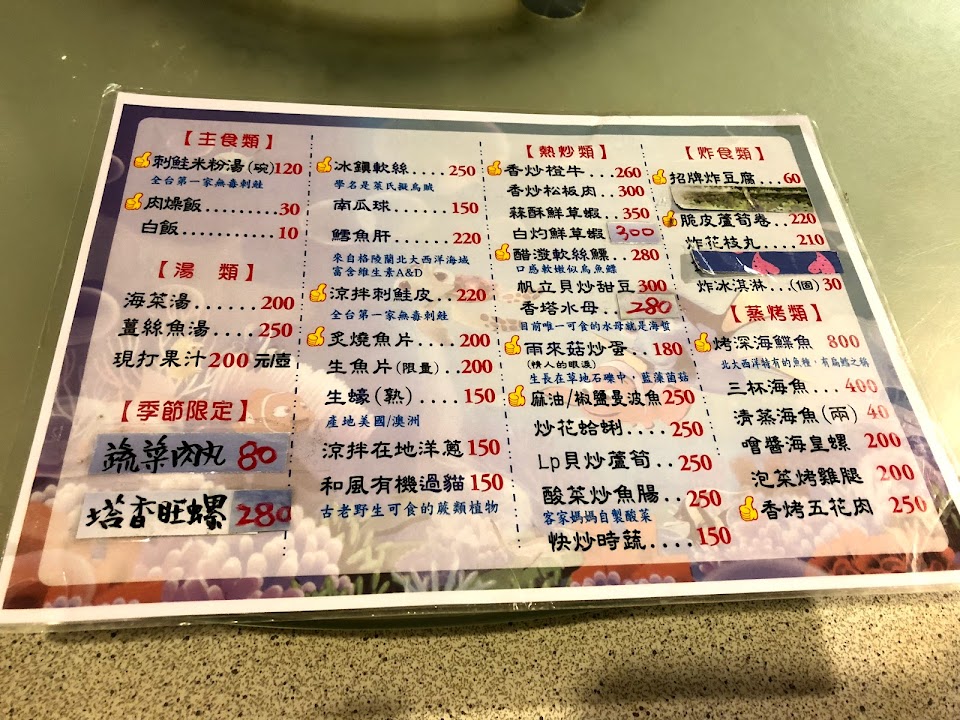 【主食類】
刺鮭米粉湯(碗)120
全台第一家無毒刺鮭
肉燥飯.........30
白飯............10
【湯 類】
海菜湯.......200
薑絲魚湯.....250
現打果汁200元/壺
【季節限定】
蔬菜肉丸 80
塔香旺螺 280
冰鎮軟絲....250
學名是萊氏擬烏賊
南瓜球......150
鱈魚肝......220
來自格陵蘭北大西洋海域
富含維生素A&D
涼拌刺鮭皮..220
全台第一家無毒刺鮭
炙燒魚片....200
生魚片(限量)..200
生蠔(熟)....150
產地美國/澳洲
涼拌在地洋蔥150
和風有機過貓150
古老野生可食的蕨類植物
【熱炒類】
香炒橙牛...260
香炒松板肉..300
蒜酥鮮草蝦..350
白灼鮮草蝦 300
醋潑軟絲鰾..280
口感軟嫩似烏魚鰾
帆立貝炒甜豆300
香塔水母..280
目前唯一可食的水母就是海蜇
雨來菇炒蛋..180
(情人的眼淚)
生長在草地石礫中,藍藻菌菇
麻油/椒鹽曼波魚250
炒花蛤蜊....250
Lp貝炒蘆筍..250
酸菜炒魚腸..250
客家媽媽自製酸菜
快炒時蔬....150
【炸食類】
招牌炸豆腐...60
脆皮蘆筍卷..220
炸花枝丸....210
炸冰淇淋...(個)30
【蒸烤類】
烤深海鰈魚 800
北大西洋特有的魚種,有扁鱈之稱
三杯海魚....400
清蒸海魚(兩) 40
噌醬海皇螺 200
泡菜烤雞腿 200
香烤五花肉 250